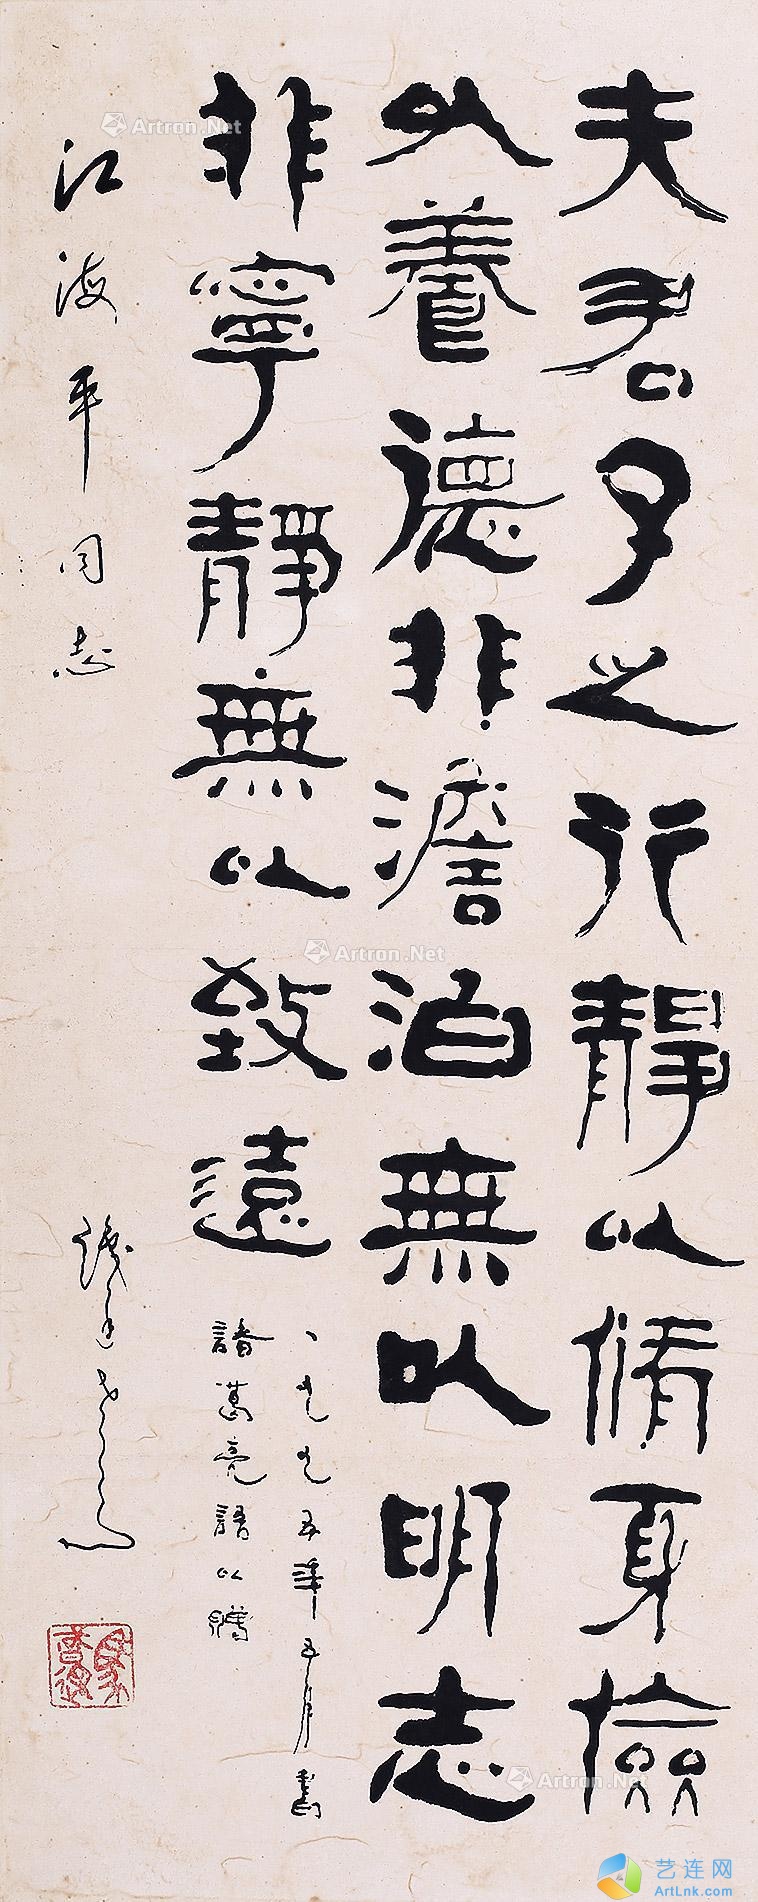 夫君子之行靜以脩身儉
以養德非澹泊無以明志
非寧靜無以致遠
一九九五年五月書
諸葛亮語以贈
江海平同志
Artron.Net
Artron.Net
Artron.Net
艺连网
ArtLnk.com